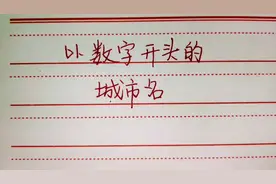 以数字开头的
城市名